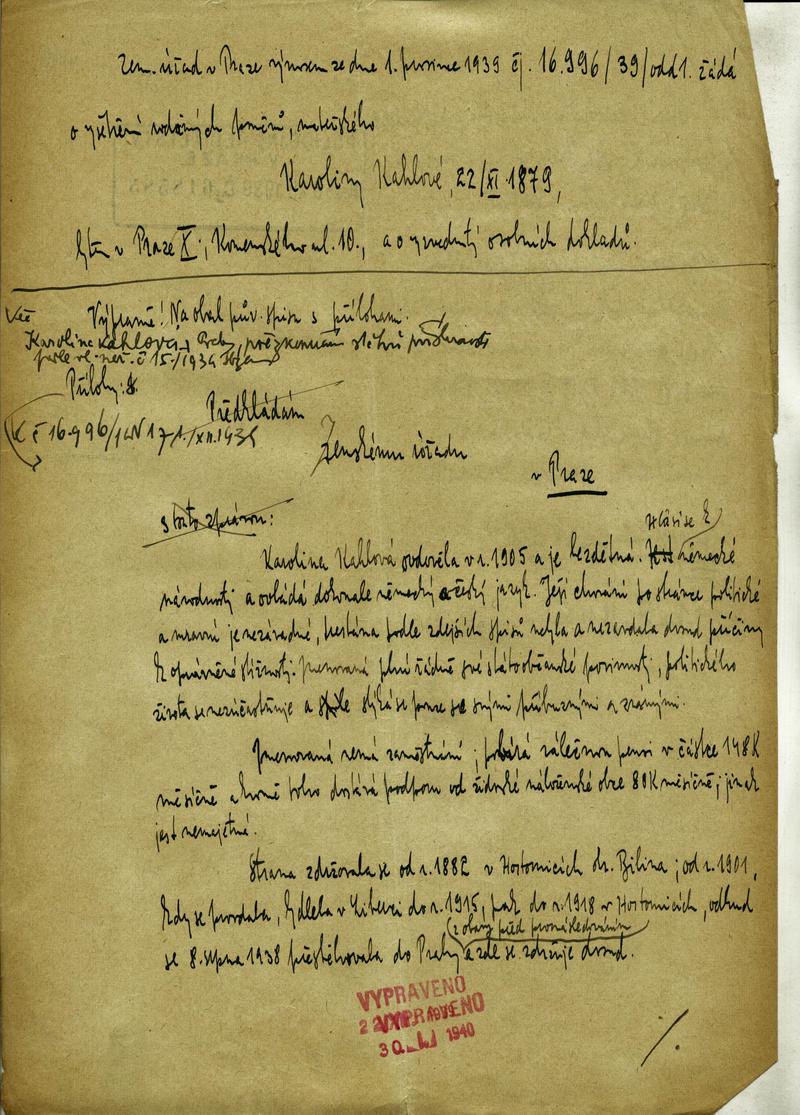 Zem. úřad v Praze výnosem ze dne 1. prosince 1939 čj. 16.996/39/odd1. žádá
o vyšetření rodinných poměrů, mateřského
Karoliny Kahlové, 22/XI 1879,
bytem v Praze X., Komenského ul. 10., a o vyzvednutí osobních dokladů.
Výpravně! Na obal pův. spisu s přílohami.
Věc
Karolina Kahlová, Praha, přezkoumání státní příslušnosti
podle vl. nař. č 15/1939
Přílohy: 8.
Předkládám
K č 16.996/
1/XII.1939
Zemskému úřadu
v Praze
s touto zprávou:
Hlásí se k
Karolina Kahlová ovdověla v r. 1905 a je bezdětná. německé
národnosti a ovládá dokonale německý a český jazyk. Její chování po stránce politické
a mravní je nezávadné, trestána podle zdejších spisů nebyla a nezavdala dosud příčiny
k oprávněné stížnosti. Jmenovaná plní řádně své státoobčanské povinnosti, politického
života se nezúčastňuje a stýká se pouze se svými příbuznými a známými.
Jmenovaná nemá zaměstnání; pobírá válečnou pensi v částce 148 K
měsíčně a kromě toho dostává podporu od židovské náboženské obce 80 K měsíčně; jinak
jest nemajetná.
Strana zdržovala se od r. 1882 v Hostomicích okr. Bílina; od r. 1901,
kdy se provdala, bydlela v Liberci do r. 1915, pak do r. 1918 v Hostomicích, odkud
(z obavy před pronásledováním
se 8. srpna 1938 přestěhovala do Prahy a zde se zdržuje dosud.
VYPRAVENO
VYPRAVENO
1940